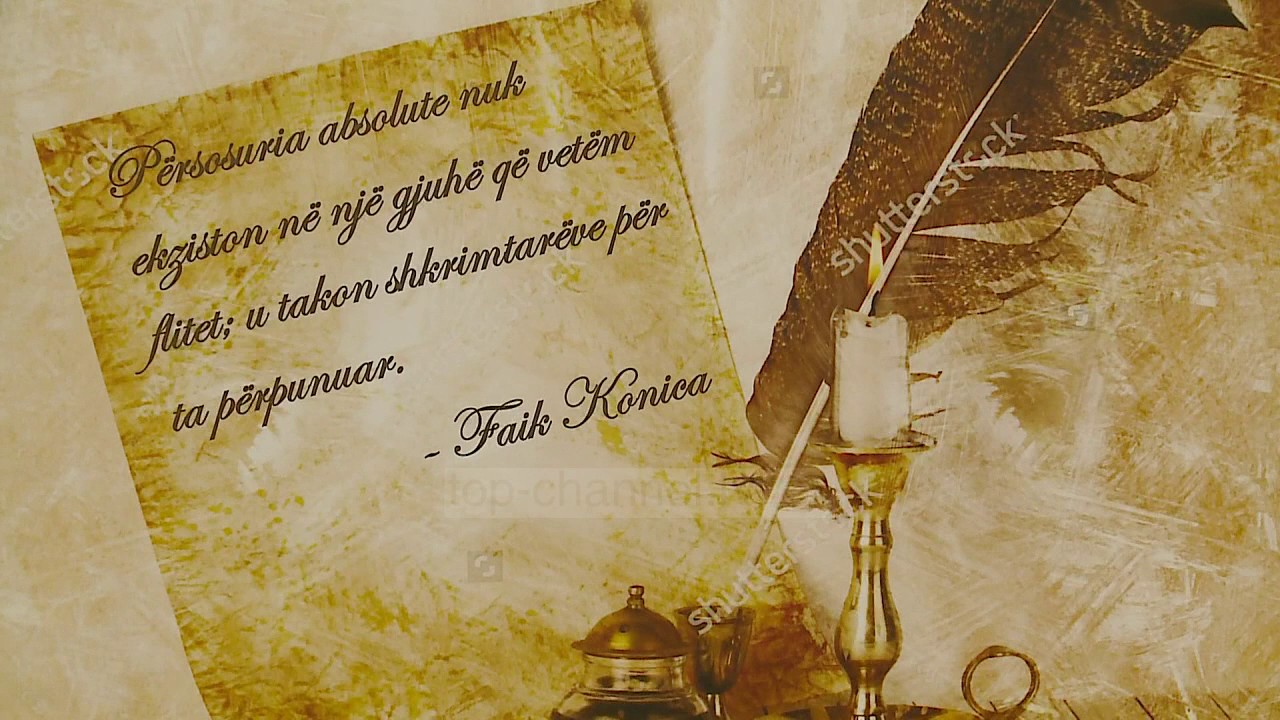 Përsosuria absolute nuk
ekziston në një gjuhë që vetëm
flitet; u takon shkrimtarëve për
ta përpunuar.
- Faik Konica
top-channel
shutterstock
shutterstock